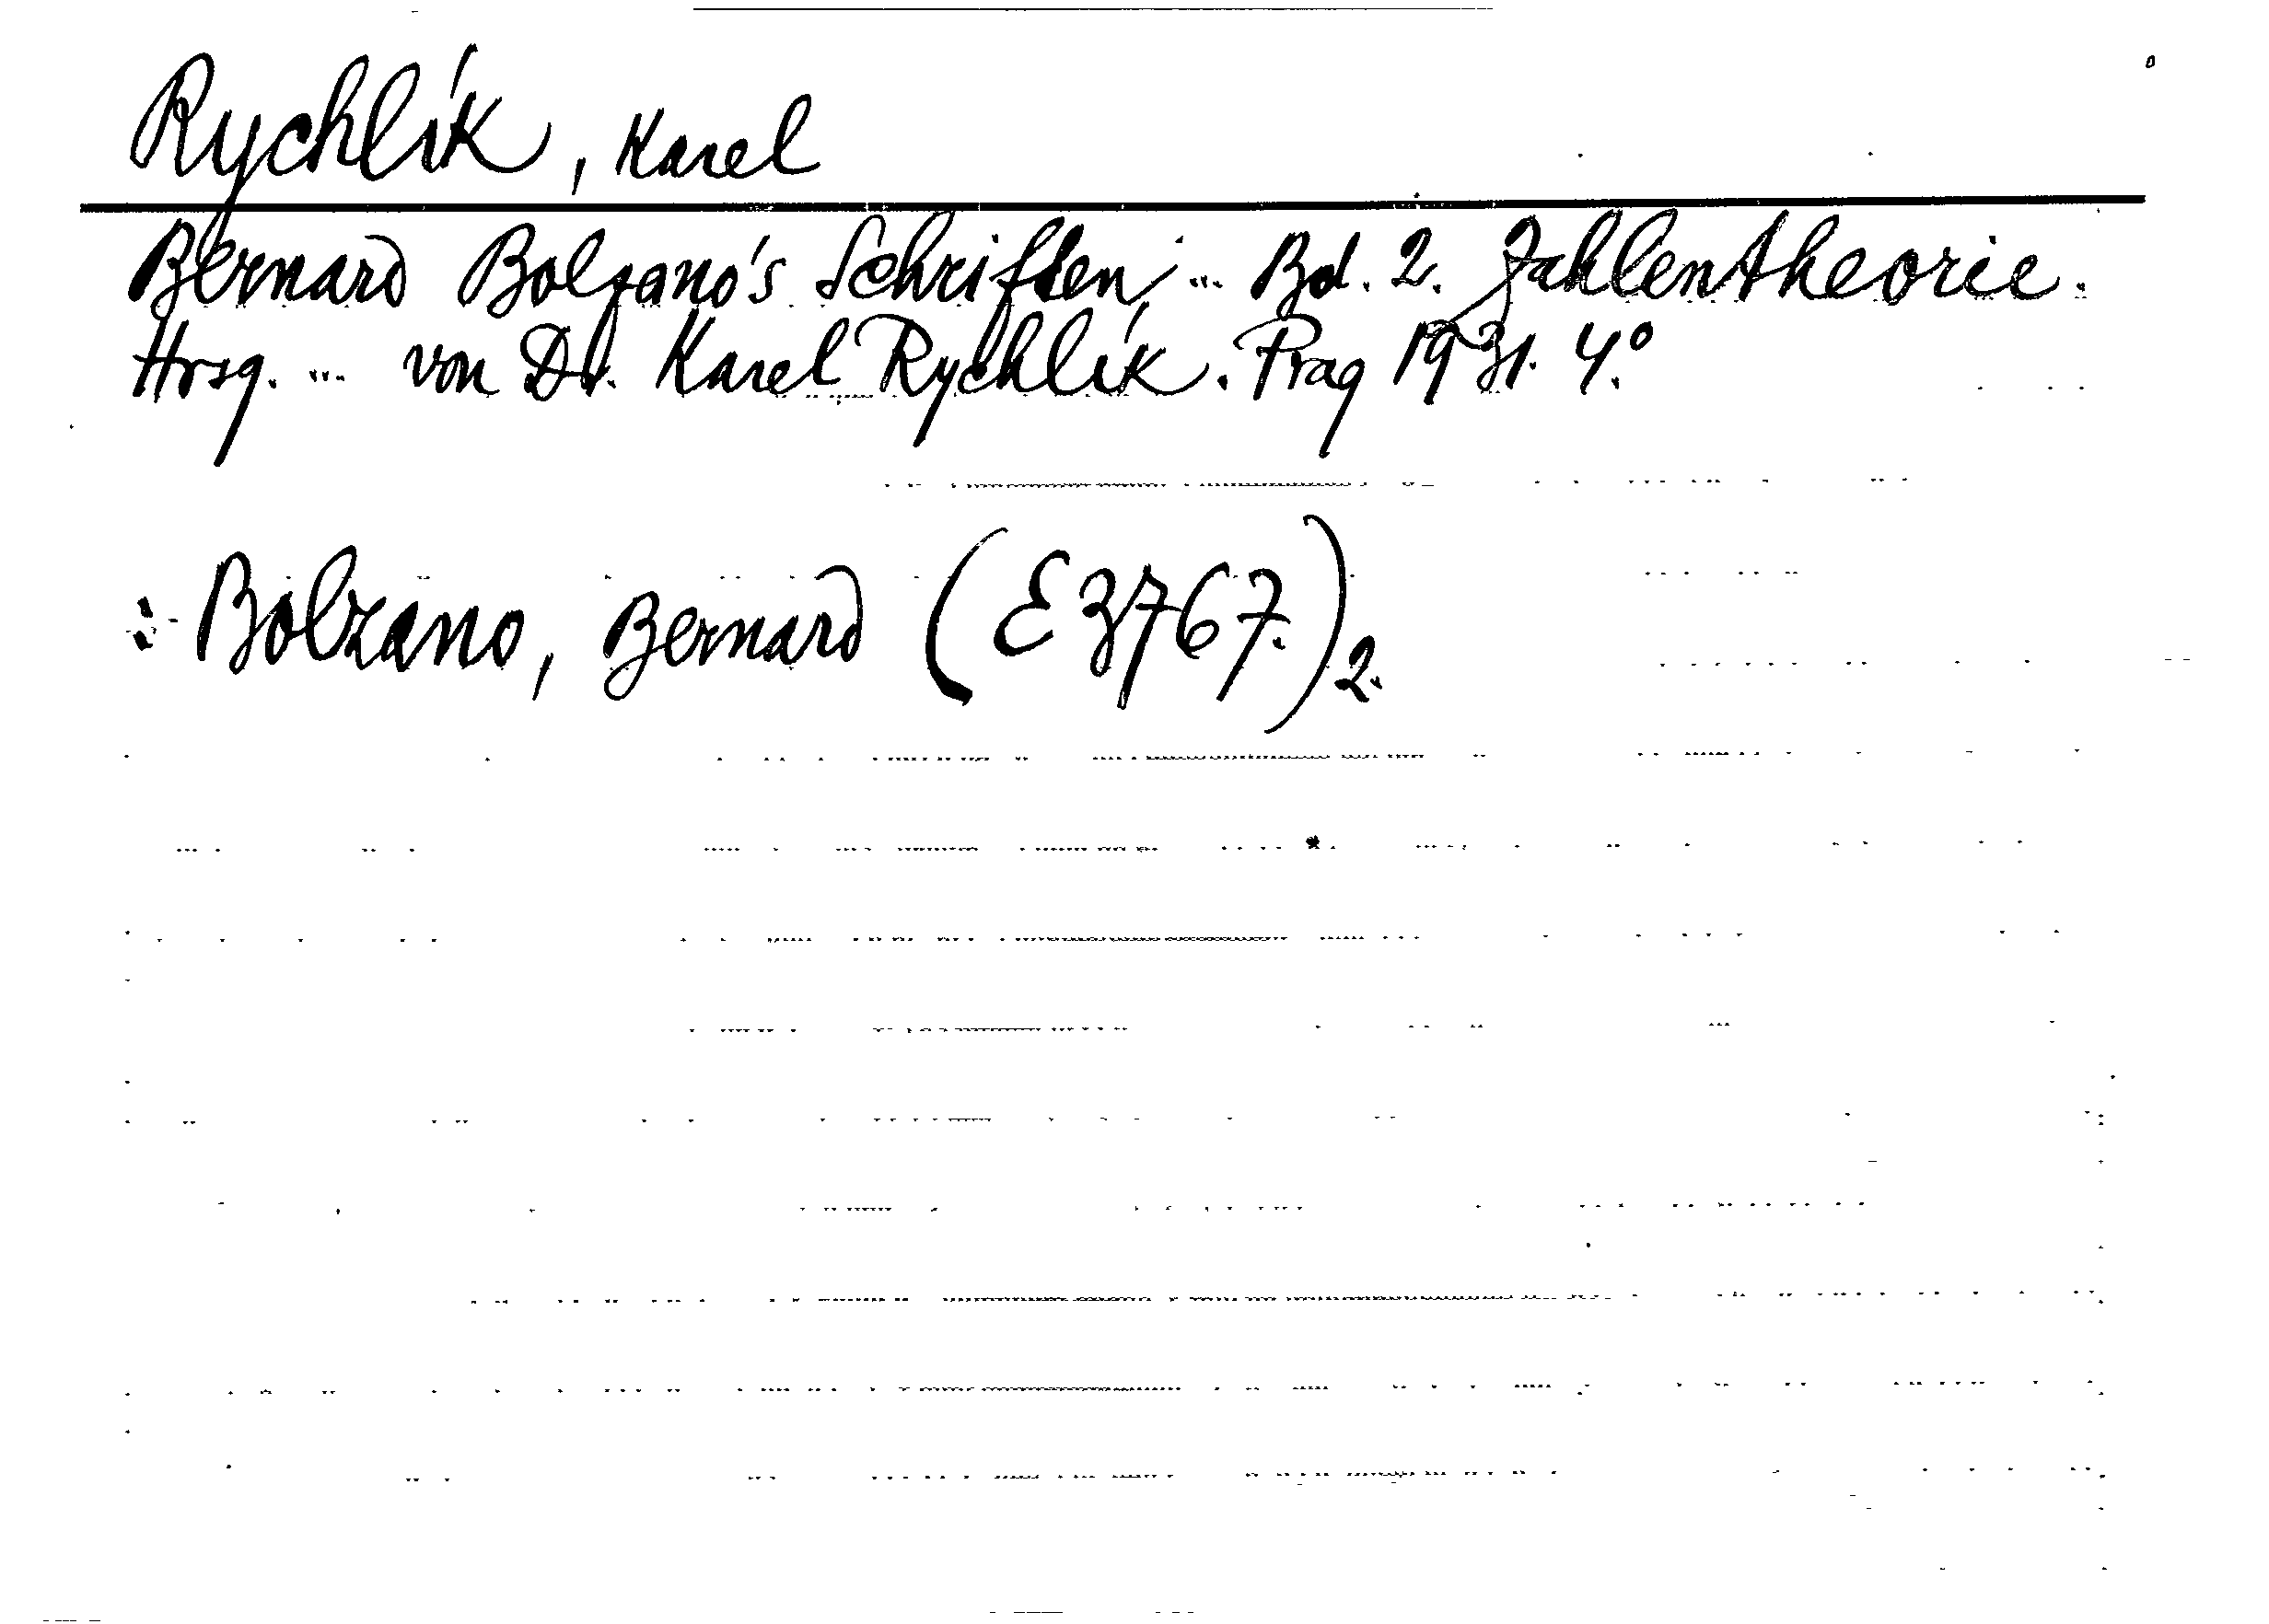 Rychlík, Karel
Bernard Bolzano's Schriften ... Bd. 2. Zahlentheorie.
Hrsg. ... von Dr. Karel Rychlík. Prag 1931. 4.°
:- Bolzano, Bernard (E 3767.) 2.